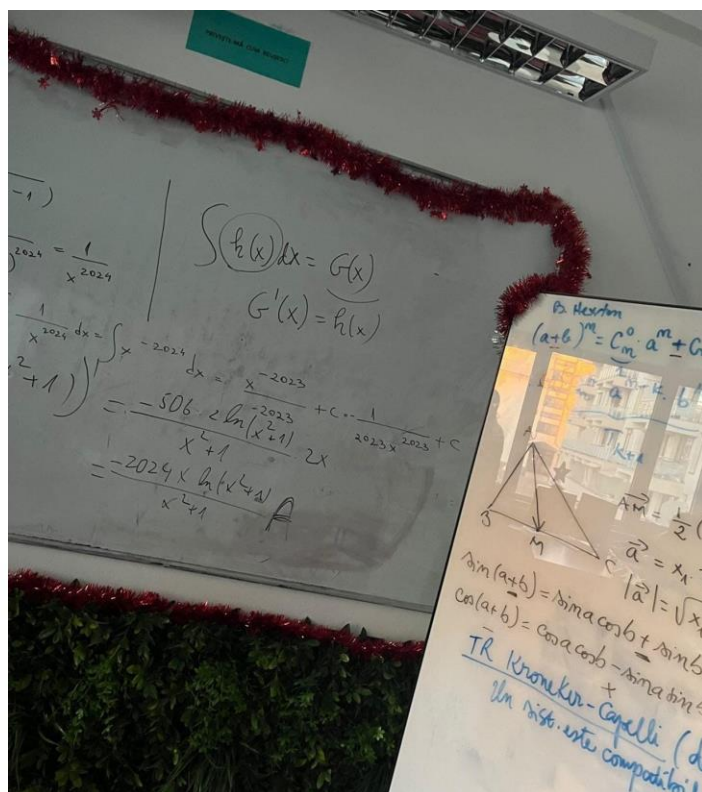 -1)
2024 = 1/x^2024
∫ h(x) dx = G(x)
G'(x) = h(x)
1/x^2024 dx = ∫ x^-2024 dx = x^-2023/-2023 + C = - 1/2023x^2023 + C
x^2+1))' = -506 · 2 ln(x^2+1)/x^2+1 · 2x
= -2024x ln(x^2+1)/x^2+1 A
B. Newton
(a+b)^n = C_n^0 · a^n + C
A
B
M
C
AM = 1/2 (
a = x_1 ·
|a| = √x
sin(a±b) = sina cosb ± sinb
cos(a±b) = cosa cosb - sina sin
+
TR Kroneker-Capelli (d
Un sist. este compatibil